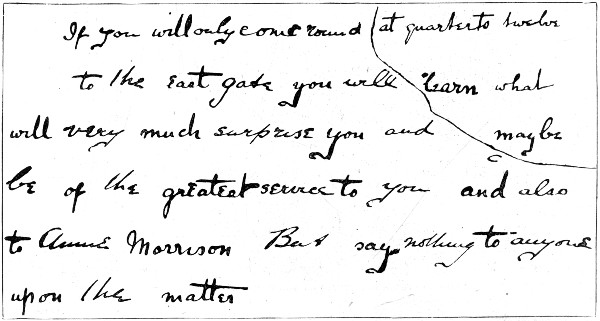 If you will only come round at quarter to twelve
to the east gate you will learn what
will very much surprise you and maybe
be of the greatest service to you and also
to Annie Morrison But say nothing to anyone
upon the matter